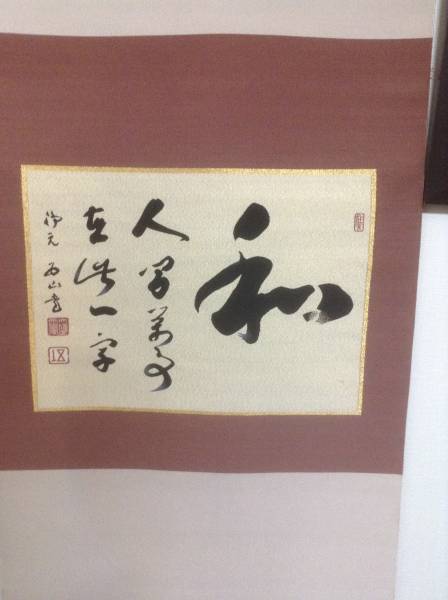 和
人間萬事
在此一字
西山書